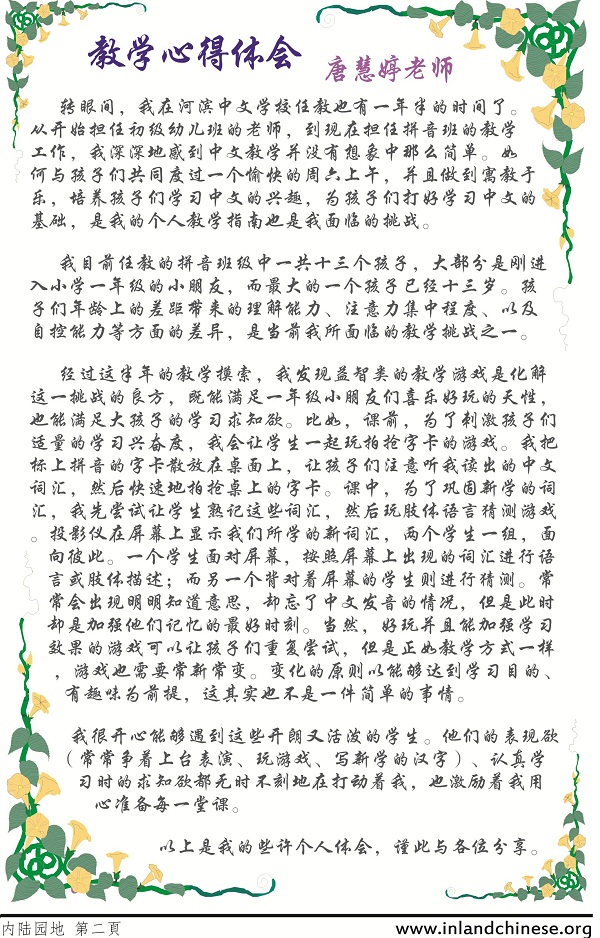 教学心得体会
唐慧婷老师
转眼间，我在河滨中文学校任教也有一年半的时间了。
从开始担任初级幼儿班的老师，到现在担任拼音班的教学
工作，我深深地感到中文教学并没有想象中那么简单。如
何与孩子们共同度过一个愉快的周六上午，并且做到寓教于
乐，培养孩子们学习中文的兴趣，为孩子们打好学习中文的
基础，是我的个人教学指南也是我面临的挑战。
我目前任教的拼音班级中一共十三个孩子，大部分是刚进
入小学一年级的小朋友，而最大的一个孩子已经十三岁。孩
子们年龄上的差距带来的理解能力、注意力集中程度、以及
自控能力等方面的差异，是当前我所面临的教学挑战之一。
经过这半年的教学摸索，我发现益智类的教学游戏是化解
这一挑战的良方，既能满足一年级小朋友们喜乐好玩的天性，
也能满足大孩子的学习求知欲。比如，课前，为了刺激孩子们
适量的学习兴奋度，我会让学生一起玩拍抢字卡的游戏。我把
标上拼音的字卡散放在桌面上，让孩子们注意听我读出的中文
词汇，然后快速地拍抢桌上的字卡。课中，为了巩固新学的词
汇，我先尝试让学生熟记这些词汇，然后玩肢体语言猜测游戏
。投影仪在屏幕上显示我们所学的新词汇，两个学生一组，面
向彼此。一个学生面对屏幕，按照屏幕上出现的词汇进行语
言或肢体描述；而另一个背对着屏幕的学生则进行猜测。常
常会出现明明知道意思，却忘了中文发音的情况，但是此时
却是加强他们记忆的最好时刻。当然，好玩并且能加强学习
效果的游戏可以让孩子们重复尝试，但是正如教学方式一样
，游戏也需要常新常变。变化的原则以能够达到学习目的、
有趣味为前提，这其实也不是一件简单的事情。
我很开心能够遇到这些开朗又活泼的学生。他们的表现欲
（常常争着上台表演、玩游戏、写新学的汉字）、认真学
习时的求知欲都无时不刻地在打动着我，也激励着我用
心准备每一堂课。
以上是我的些许个人体会，谨此与各位分享。
内陆园地 第二頁
www.inlandchinese.org